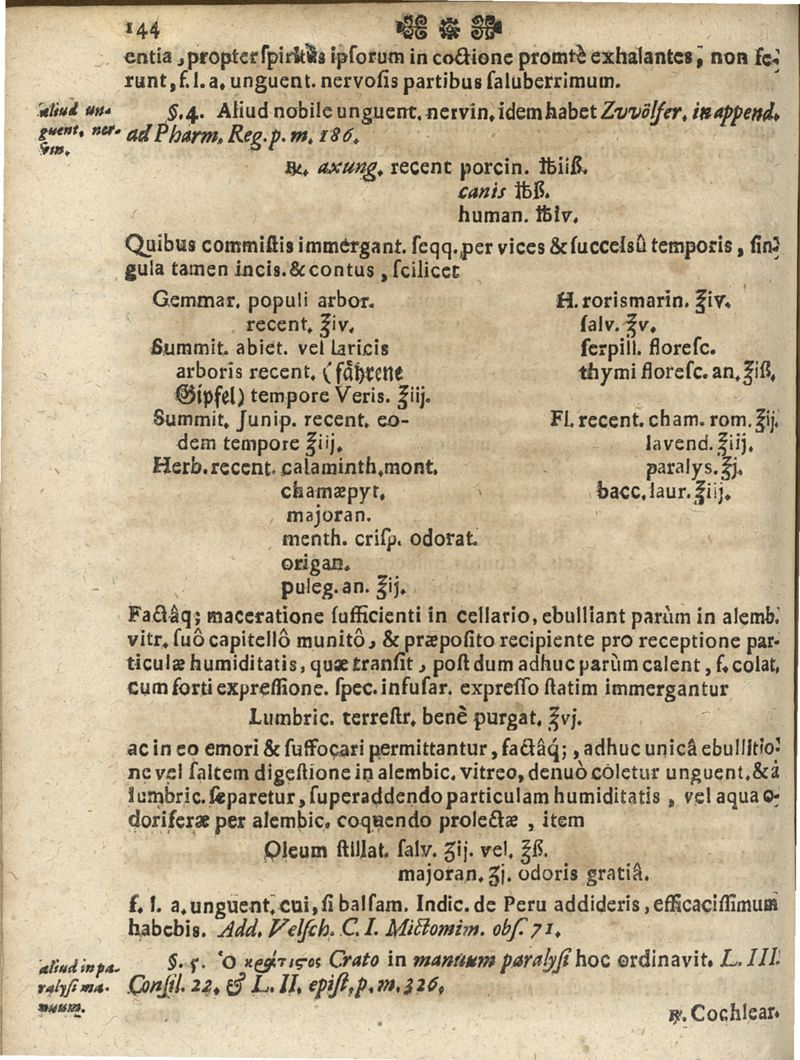 144
entia, propter spiritus ipsorum in coctione promtè exhalantes, non fe-
runt, f. l. a. unguent. nervosis partibus saluberrimum.
aliud un-
guent. ner-
vin.
§. 4. Aliud nobile unguent. nervin. idem habet Zvvölfer. in append.
ad Pharm. Reg. p. m. 186.
℞. axung. recent porcin. ℔iiß.
canis ℔ß.
human. ℔iv.
Quibus commistis immergant. seqq. per vices & successû temporis, sin-
gula tamen incis. & contus, scilicet
Gemmar. populi arbor.
recent. ℥iv.
Summit. abiet. vel laricis
arboris recent. (fåhrene
Gipfel) tempore Veris. ℥iij.
Summit. Junip. recent. eo-
dem tempore ℥iij.
Herb. recent. calaminth. mont.
chamæpyt.
majoran.
menth. crisp. odorat.
origan.
puleg. an. ℥ij.
H. rorismarin. ℥iv.
salv. ℥v.
serpill. floresc.
thymi floresc. an. ℥iß.
Fl. recent. cham. rom. ℥ij.
lavend. ℥iij.
paralys. ℥j.
bacc. laur. ℥iij.
Factâq; maceratione sufficienti in cellario, ebulliant parùm in alemb.
vitr. suô capitellô munitô, & præposito recipiente pro receptione par-
ticulæ humiditatis, quæ transit, post dum adhuc parùm calent, f. colat.
cum forti expressione. spec. infusar. expresso statim immergantur
Lumbric. terrestr. benè purgat. ℥vj.
ac in eo emori & suffocari permittantur, factâq;, adhuc unicâ ebullitio-
ne vel saltem digestione in alembic. vitreo, denuò coletur unguent. & à
lumbric. separetur, superaddendo particulam humiditatis, vel aqua o-
doriferæ per alembic. coquendo prolectæ, item
Oleum stillat. salv. ʒij. vel. ℥ß.
majoran. ʒj. odoris gratiâ.
f. l. a. unguent. cui, si balsam. Indic. de Peru addideris, efficacissimum
habebis. Add. Velsch. C. I. Mictomim. obs. 71.
aliud in pa-
ralysi ma-
nuum.
§. 5. Ὁ κράτιστος Crato in manuum paralysi hoc ordinavit. L. III.
Consil. 22. & L. II. epist. p. m. 326.
℞. Cochlear.